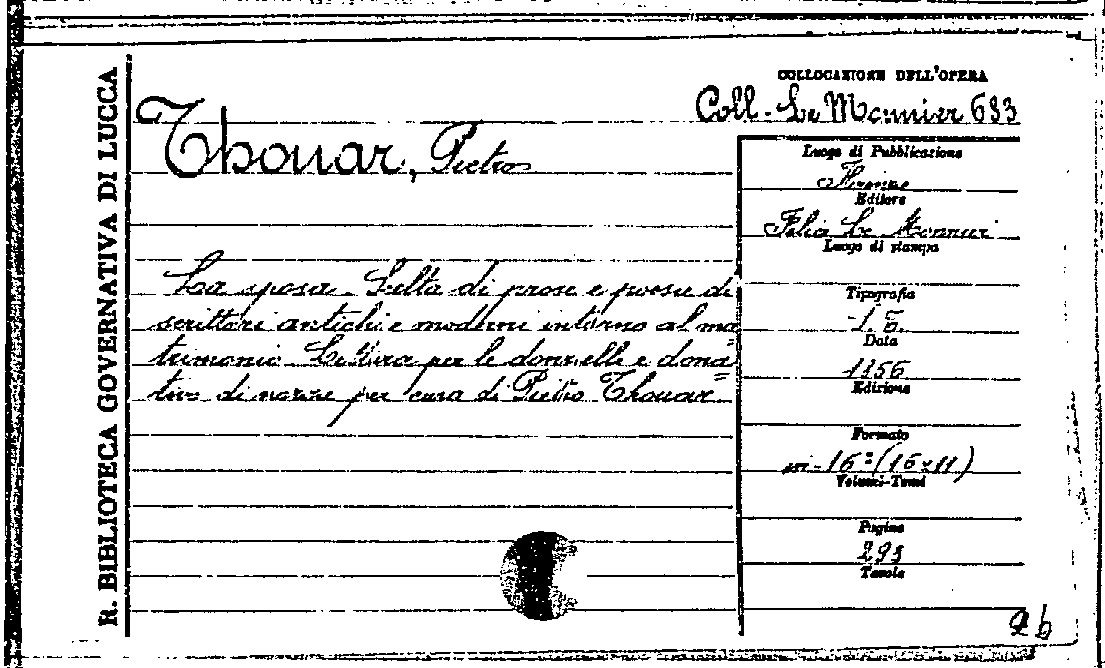 R. BIBLIOTECA GOVERNATIVA DI LUCCA
COLLOCAZIONE DELL'OPERA
Coll. Le Monnier 633
Thouar, Pietro
La sposa. Scelta di prose e poesie di
scrittori antichi e moderni intorno al ma=
trimonio. Lettura per le donzelle e dona=
tivo di nozze per cura di Pietro Thouar
Luogo di Pubblicazione
Firenze
Editore
Felice Le Monnier
Luogo di stampa
Tipografia
Data
1856
Edizione
Formato
in-16º (16x11)
Volumi-Tomi
Pagine
293
Tavole